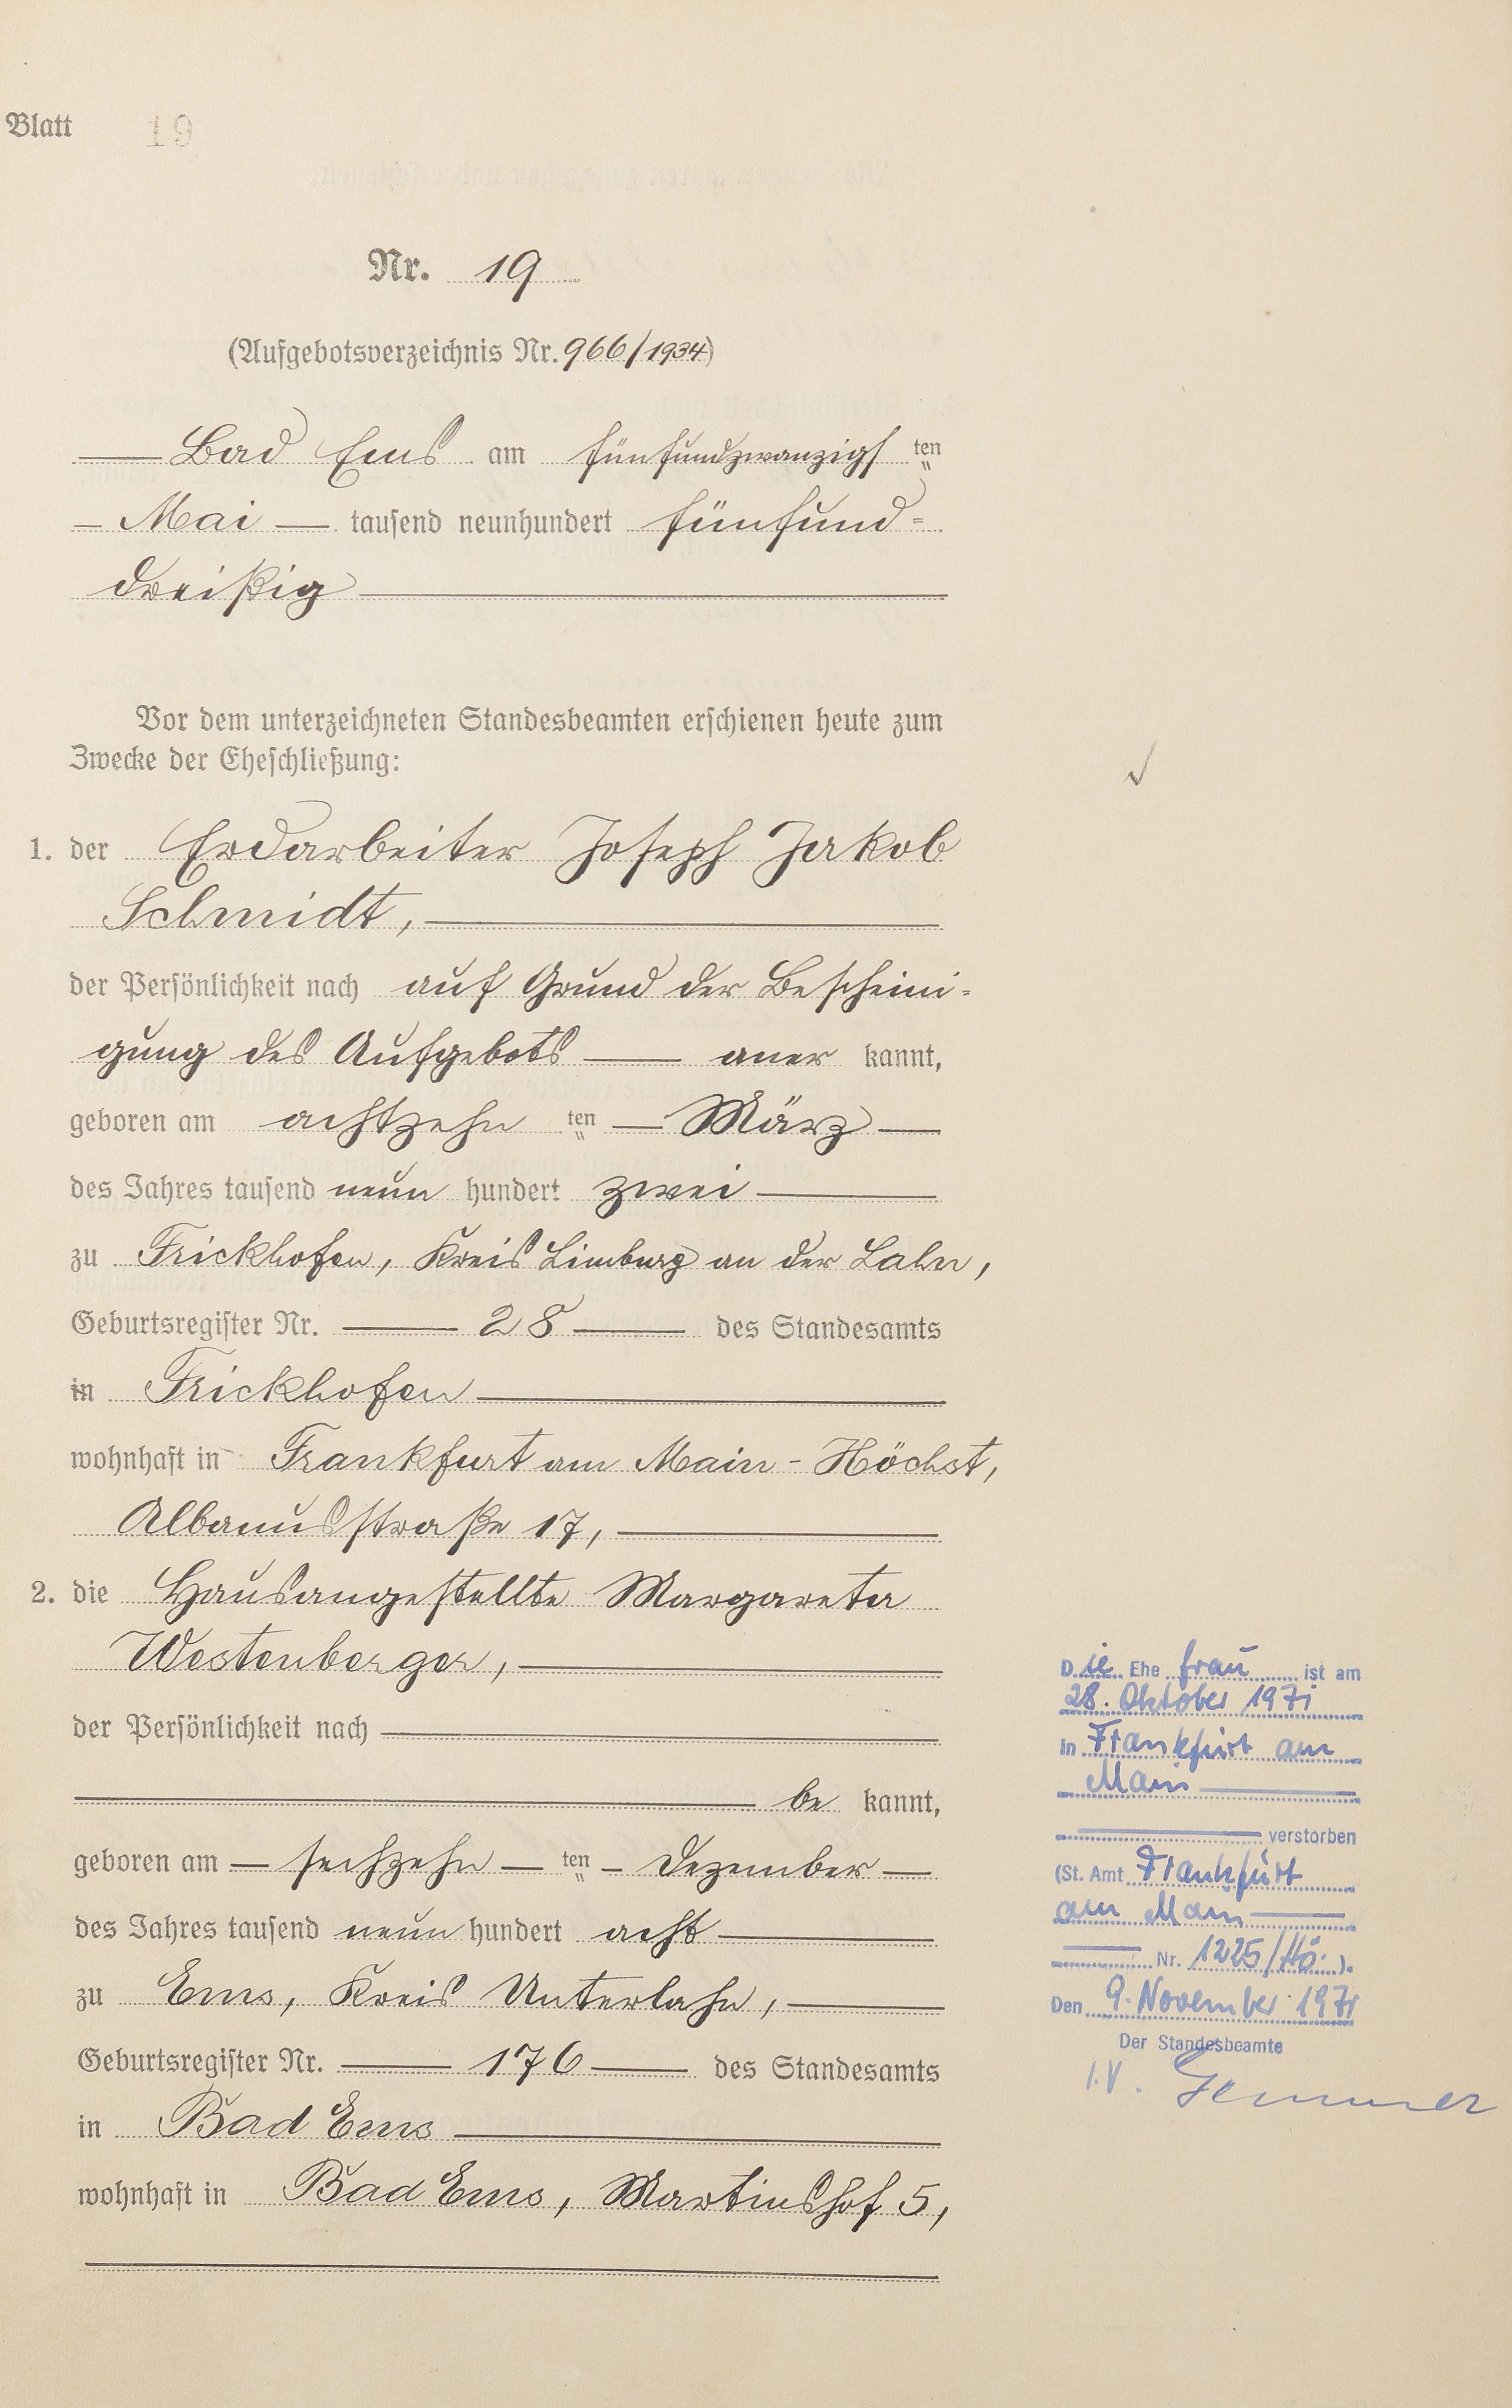 Blatt 19
Nr. 19
(Aufgebotsverzeichnis Nr. 966/1934)
Bad Ems am fünfundzwanzigsten
Mai tausend neunhundert fünfund=
dreißig
Vor dem unterzeichneten Standesbeamten erschienen heute zum
Zwecke der Eheschließung:
1. der Erdarbeiter Joseph Jakob
Schmidt,
der Persönlichkeit nach auf Grund der Bescheini-
gung des Aufgebots aner kannt,
geboren am achtzehn ten März
des Jahres tausend neun hundert zwei
zu Frickhofen, Kreis Limburg an der Lahn,
Geburtsregister Nr. 28 des Standesamts
in Frickhofen
wohnhaft in Frankfurt am Main-Höchst,
Albanusstraße 17,
2. die Hausangestellte Margareta
Westenberger,
der Persönlichkeit nach
be kannt,
geboren am sechzehn ten Dezember
des Jahres tausend neun hundert acht
zu Ems, Kreis Unterlahn,
Geburtsregister Nr. 176 des Standesamts
in Bad Ems
wohnhaft in Bad Ems, Martinshof 5,
Die Ehe frau ist am
28. Oktober 1971
in Frankfurt am
Main
verstorben
(St. Amt Frankfurt
am Main
Nr. 1225/Hö.).
Den 9. November 1971
Der Standesbeamte
I.V.